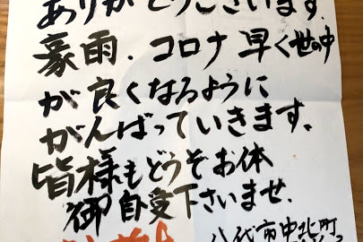 ありがとうございます.
豪雨.コロナ早く世の中
が良くなるように
がんばっていきます.
皆様もどうぞお体
御自愛下さいませ.
八代市中北町